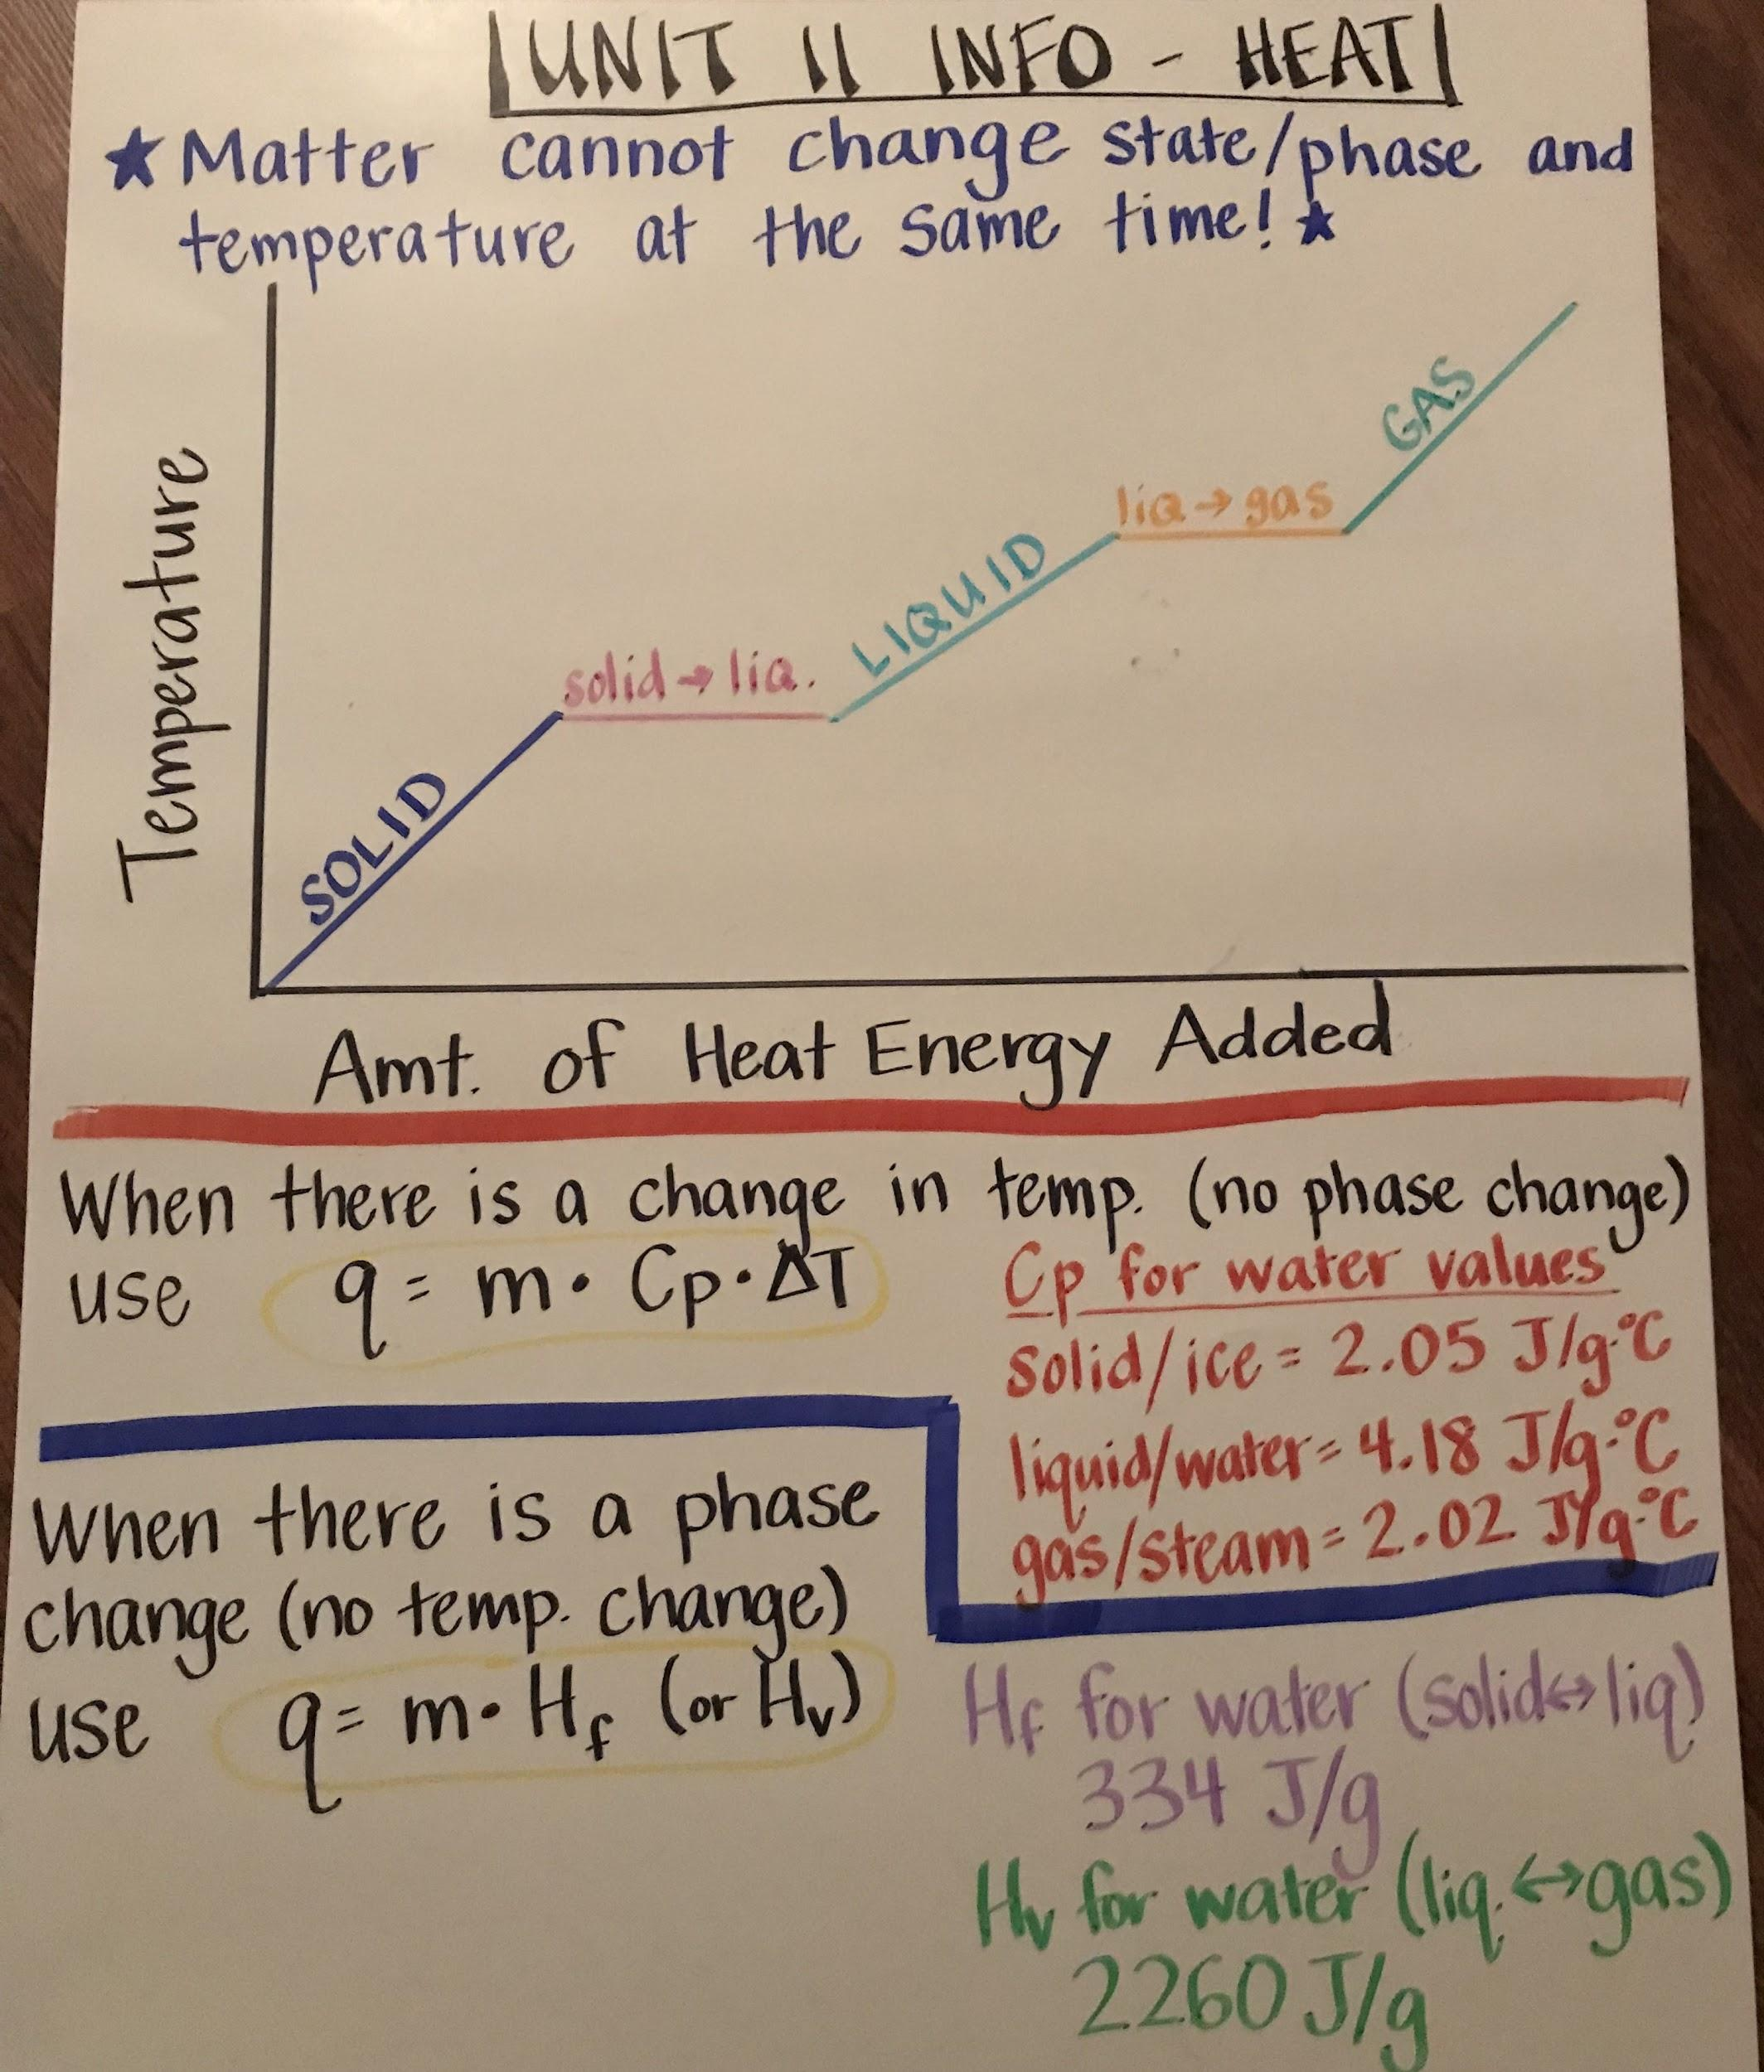 UNIT 11 INFO - HEAT
★ Matter cannot change state/phase and
temperature at the same time! ★
Temperature
SOLID
solid → liq.
LIQUID
liq → gas
GAS
Amt. of Heat Energy Added
When there is a change in temp. (no phase change)
use q = m · Cp · ΔT
Cp for water values
solid/ice = 2.05 J/g·°C
liquid/water = 4.18 J/g·°C
gas/steam = 2.02 J/g·°C
When there is a phase
change (no temp. change)
use q = m · Hf (or Hv)
Hf for water (solid ↔ liq)
334 J/g
Hv for water (liq. ↔ gas)
2260 J/g